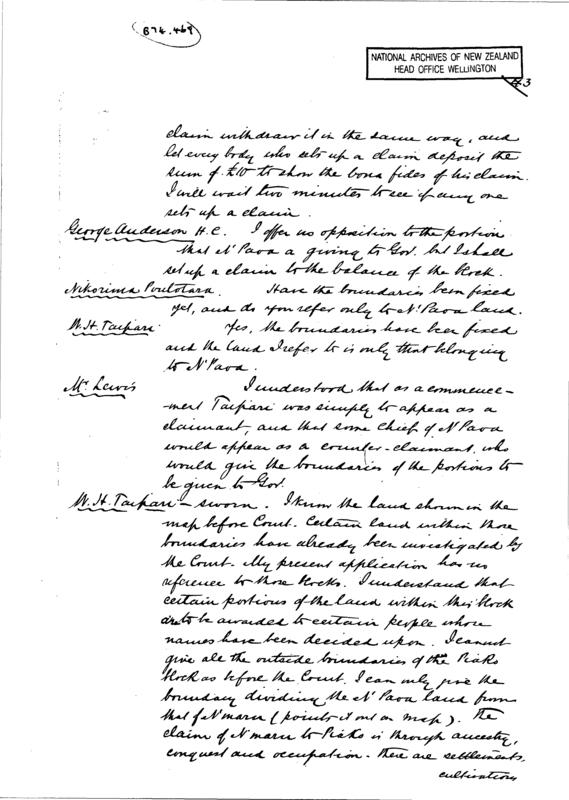 B74.469
NATIONAL ARCHIVES OF NEW ZEALAND
HEAD OFFICE WELLINGTON
3
claim withdraw it in the same way, and
let every body who sets up a claim deposit the
sum of £10 to show the bona fides of his claim.
I will wait two minutes to see if any one
sets up a claim.
George Anderson H.C. I offer no opposition to the portion
that N' Paoa a giving to Gov. but I shall
set up a claim to the balance of the Block.
Nikorima Poutotara. Have the boundaries been fixed
yet, and do you refer only to N' Paoa land.
W.H. Taipari. Yes, the boundaries have been fixed
and the land I refer to is only that belonging
to N' Paoa.
Mr Lewis I understood that as a commence-
-ment Taipari was simply to appear as a
claimant, and that some Chief of N' Paoa
would appear as a counter-claimant, who
would give the boundaries of the portions to
be given to Gov.
W.H. Taipari - sworn. I know the land shown in the
map before Court. Certain land within those
boundaries have already been investigated by
the Court. My present application has no
reference to those blocks. I understand that
certain portions of the land within this block
are to be awarded to certain people whose
names have been decided upon. I cannot
give all the outside boundaries of the Piako
block as before the Court. I can only give the
boundary dividing the N' Paoa land from
that of N' maru (points it out on map). The
claim of N' maru to Piako is through ancestry,
conquest and occupation. There are settlements,
cultivations